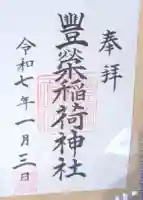 奉拝
豐榮稲荷神社
令和七年一月三日